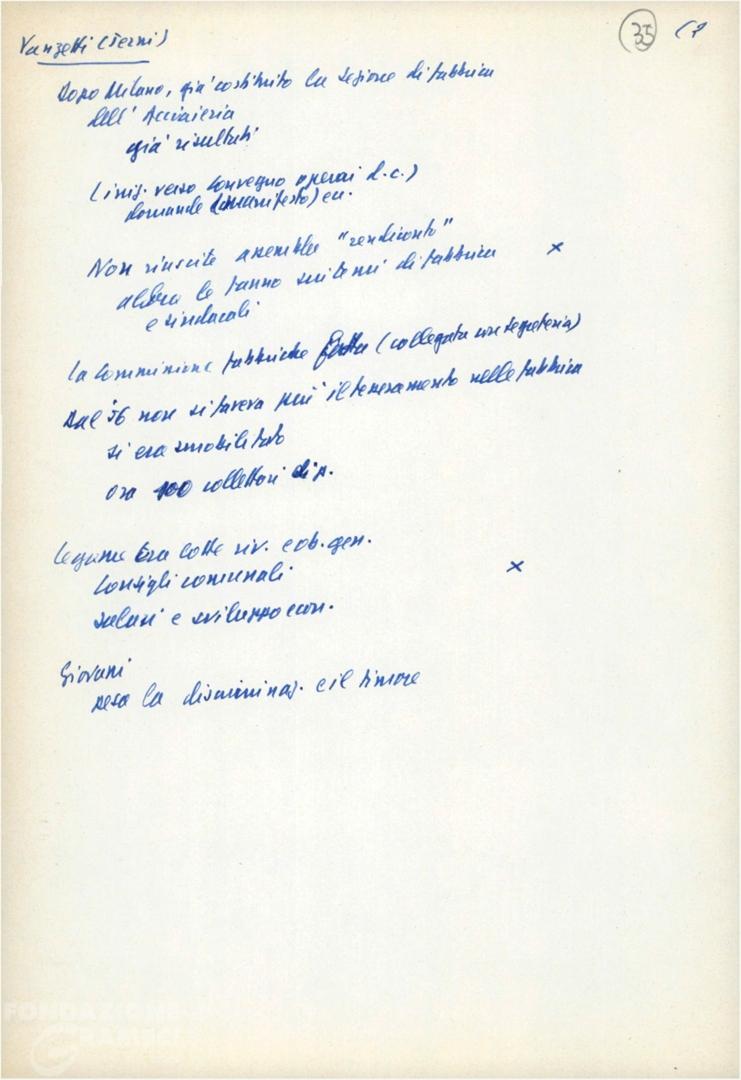 Vanzetti (Terni)
35
17
dopo Milano, già costituito la sezione di fabbrica
dell'Acciaieria
già risultati
(iniz. verso convegno operai d.c.)
domande (manifesto) ecc.
Non riuscite assemblee "rendiconto"
allora le fanno sui temi di fabbrica x
e sindacali
La Commissione fabbriche fatta (collegata con segreteria)
Dal '56 non si faceva più il tesseramento nelle fabbrica
si era smobilitato
ora 100 collettori di p.
Legame tra lotte riv. e ob. gen.
Consigli comunali x
salari e sviluppo econ.
Giovani
pesa la discriminaz. e il timore
FONDAZIONE
GRAMSCI